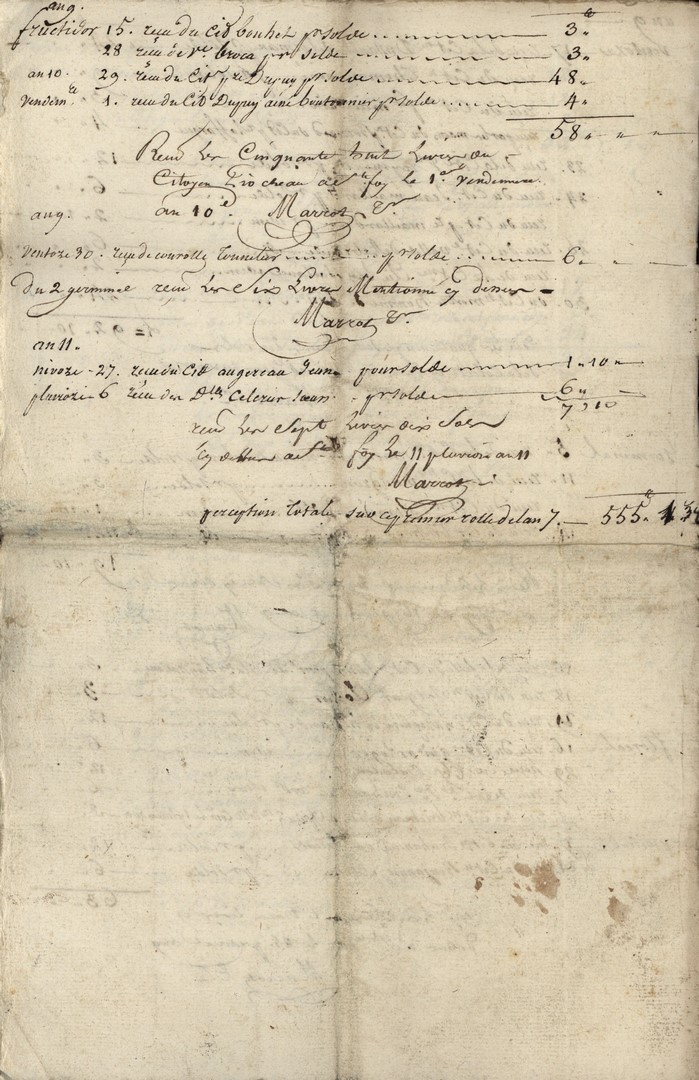 an 9.
fructidor 15. recu du Cit bonhet pr solde 3 "
28 recu de ve broca pr solde 3 "
an 10 29. recu du Cit pre Dupuy pr solde 48 "
vendemre 1. recu du Cit Dupuy ainé boutonnier pr solde 4 "
58 " " "
Recu Les Cinquante huit Livres du
Citoyen a Ste foy le 1er vendemiere
an 10e. Marrot
an 9.
ventoze 30. recu de courolle tonnelier pr solde 6 "
Du 2 germinal recu Les Six Livres Mentionné cy dessus
Marrot
an 11.
nivoze - 27. recu du Cit augereau Jeune pour solde 1 " 10 "
pluvioze - 6 recu des Dlles Celerier sœurs pr solde 6 "
7 , 10
recu Les Sept Livres dix Sols
cy dessus a Ste foy Le 11 pluviose an 11
Marrot
perception Totale sur ce premier rolle de lan 7. 555 "